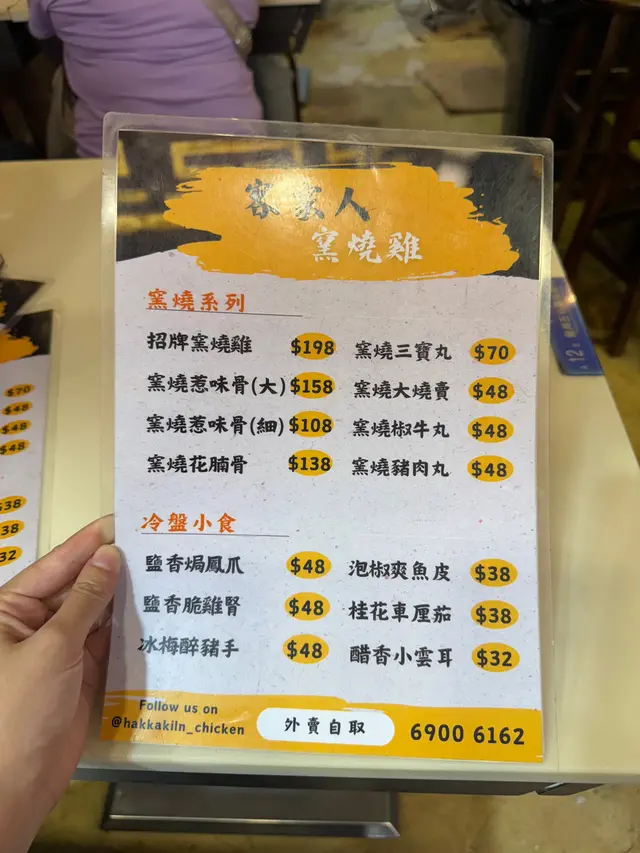 客家人
窯燒雞
窯燒系列
招牌窯燒雞 $198
窯燒惹味骨(大) $158
窯燒惹味骨(細) $108
窯燒花腩骨 $138
窯燒三寶丸 $70
窯燒大燒賣 $48
窯燒椒牛丸 $48
窯燒豬肉丸 $48
冷盤小食
鹽香焗鳳爪 $48
鹽香脆雞腎 $48
冰梅醉豬手 $48
泡椒爽魚皮 $38
桂花車厘茄 $38
醋香小雲耳 $32
Follow us on
@hakkakiln_chicken
外賣自取
6900 6162
$70
$48
$48
$48
$38
$38
$32
12